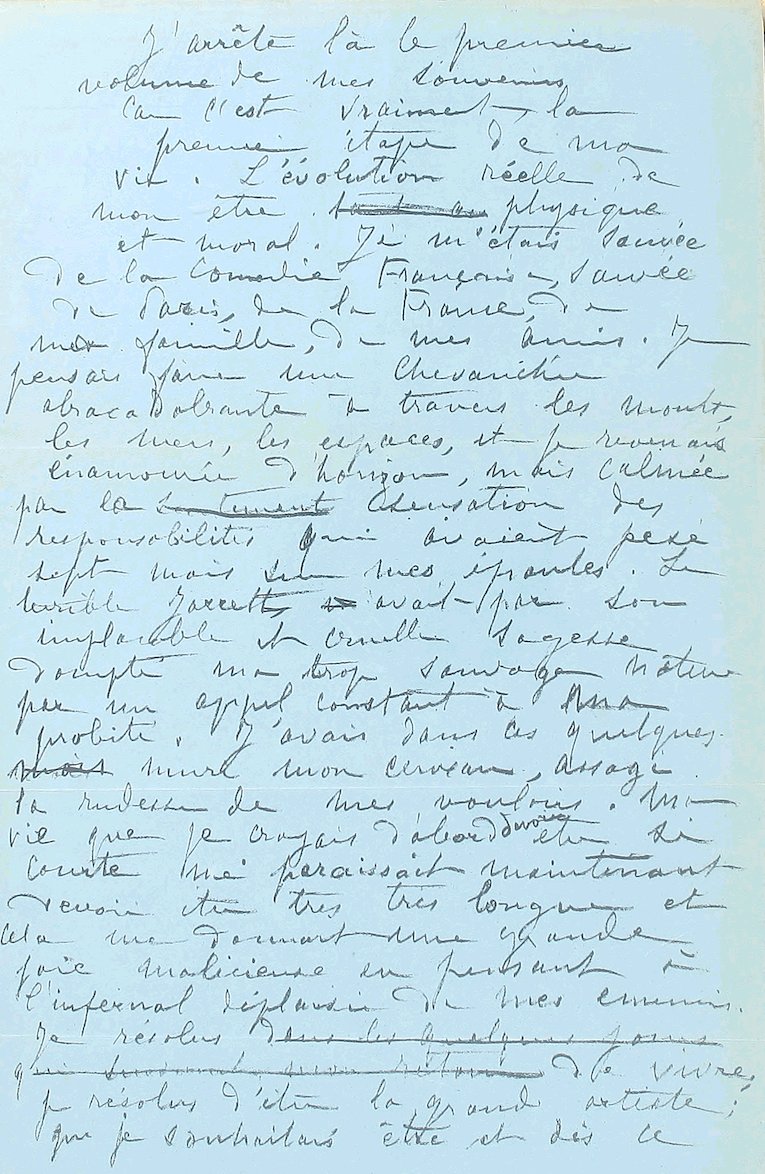 J'arrête là le premier
volume de mes souvenirs
car c'est vraiment la
première étape de ma
vie. L'évolution réelle de
mon être physique
et moral. Je m'étais sauvée
de la Comedie Française, sauvée
de Paris, de la France, de
ma famille, de mes amis. Je
pensais faire une chevauchée
abracadabrante à travers les monts,
les mers, les espaces, et je revenais
énamourée d'horizon, mais calmée
par la sensation des
responsabilités qui avaient pesé
sept mois sur mes épaules. Le
terrible Jarrett, avait par son
implacable et cruelle sagesse
dompté ma trop sauvage nature
par un appel constant à ma
probité. J'avais dans ces quelques
mois muri mon cerveau, assagi
la rudesse de mes vouloirs. Ma
vie que je croyais d'abord devoir être si
courte me paraissait maintenant
devoir être tres tres longue et
cela me donnait une grande
joie malicieuse en pensant à
l'infernal déplaisir de mes ennemis.
Je résolus dans les quelques jours
qui mon retour de vivre,
je résolus d'être la grande artiste;
que je souhaitais être et dès ce